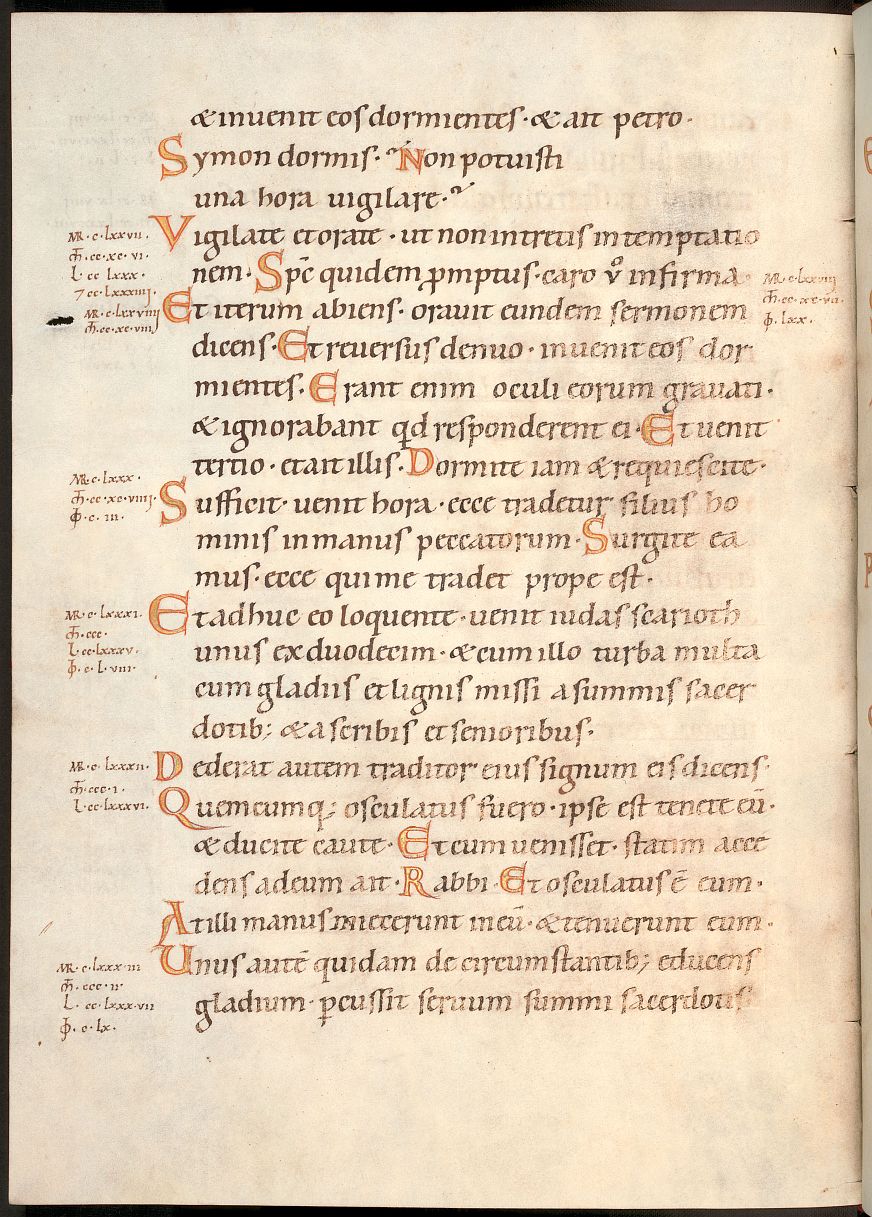 & inuenit eos dormientes · & ait petro ·
Symon dormis · Non potuisti
una hora uigilare ·
MR · c · lxxvii ·
Vigilate et orate · ut non intretis in temptatio
nem · Sp̄c quidem ꝓmptus · caro v̊ infirma
Et iterum abiens · orauit eundem sermonem
dicens · Et reuersus denuo · inuenit eos dor
mientes · Erant enim oculi eorum grauati ·
& ignorabant qđ responderent ei · Et uenit
tertio · et ait illis · Dormite iam & requiescite ·
Sufficit · uenit hora · ecce tradetur filius ho
minis in manus peccatorum · Surgite ea
mus · ecce qui me tradet prope est ·
Et adhuc eo loquente · uenit iudas scarioth
unus ex duodecim · & cum illo turba multa
cum gladiis et lignis missi a summis sacer
dotib; & a scribis et senioribus ·
Dederat autem traditor eius signum eis dicens ·
Quemcumq; osculatus fuero · ipse est tenete eū ·
& ducite caute · Et cum uenisset · statim acce
dens ad eum ait · Rabbi · Et osculatus ē eum ·
At illi manus iniecerunt in eū · & tenuerunt eum ·
Unus autē quidam de circumstantib; educens
gladium · ꝑcussit seruum summi sacerdotis
m̄ · cc · xc · vi ·
L · cc lxxx ·
7 cc · lxxxiiij ·
MR · c · lxxviiij
m̄ · cc · xc · viii
MR · c · lxxviij
m̄ · cc · xc · vii ·
ꝕ · lxx ·
MR · c · lxxx ·
m̄ · cc · xc · viiij ·
ꝕ · c · iii ·
MR · c · lxxxi ·
m̄ · ccc ·
L · cc · lxxxv ·
ꝕ · c · l · viii ·
MR · c · lxxxii ·
m̄ · ccc · i ·
L · cc · lxxxvi ·
MR · c · lxxx · iii
m̄ · ccc · ii ·
L · cc · lxxx · vii
ꝕ · c · lx ·